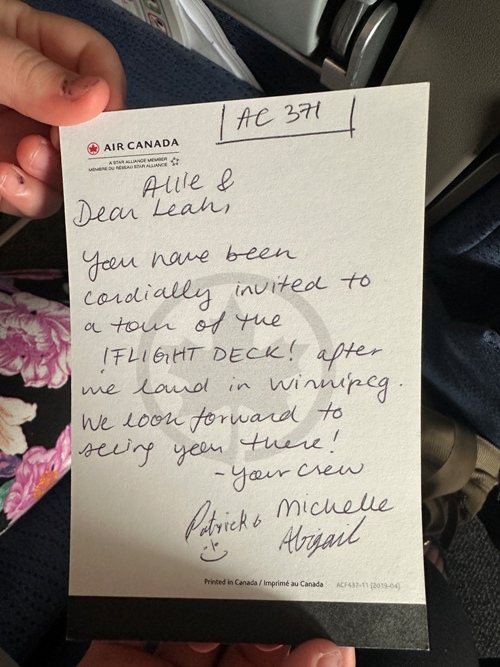 AC 371
AIR CANADA
A STAR ALLIANCE MEMBER
MEMBRE DU RÉSEAU STAR ALLIANCE
Allie &
Dear Leah,
You have been
cordially invited to
a tour of the
!FLIGHT DECK! after
we land in Winnipeg.
We look forward to
seeing you there!
- Your crew
Patrick & Michelle
Abigail
Printed in Canada / Imprimé au Canada ACF437-11 (2019-04)